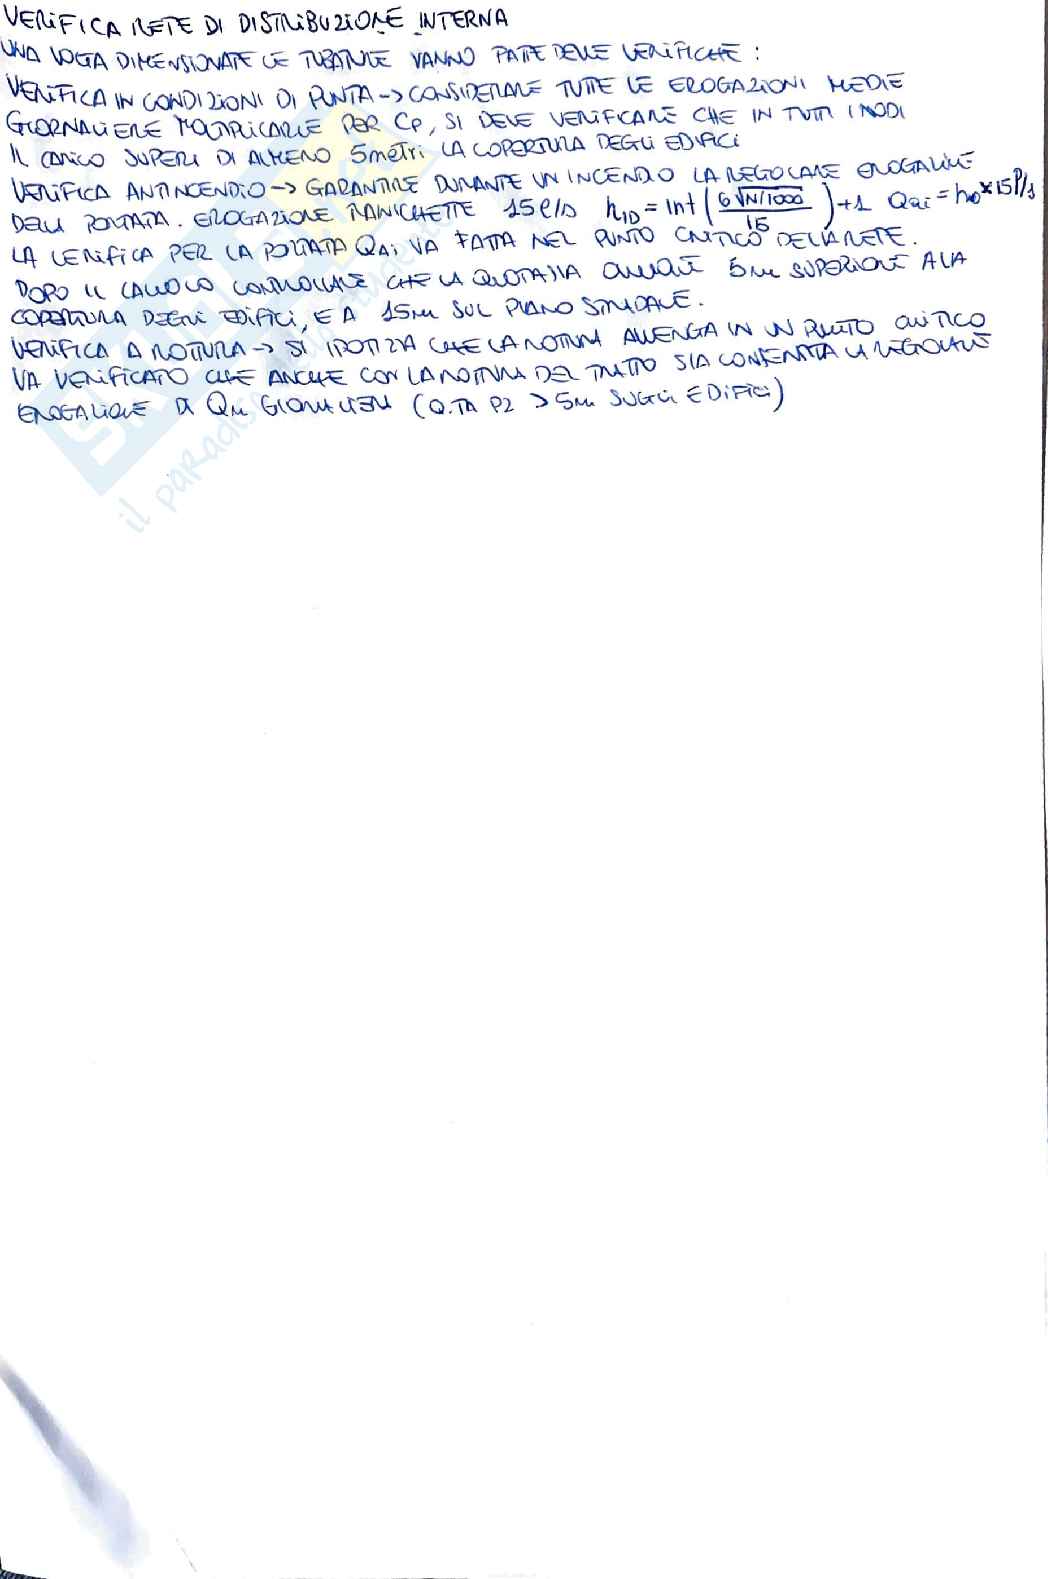 VERIFICA RETE DI DISTRIBUZIONE INTERNA
UNA VOLTA DIMENSIONATE LE TUBATURE VANNO FATTE DELLE VERIFICHE :
VERIFICA IN CONDIZIONI DI PUNTA -> CONSIDERARE TUTTE LE EROGAZIONI MEDIE
GIORNALIERE MOLTIPLICARLE PER Cp, SI DEVE VERIFICARE CHE IN TUTTI I NODI
IL CARICO SUPERI DI ALMENO 5 metri LA COPERTURA DEGLI EDIFICI
VERIFICA ANTINCENDIO -> GARANTIRE DURANTE UN INCENDIO LA REGOLARE EROGAZIONE
DELLA PORTATA. EROGAZIONE MANICHETTE 15 l/s hID = Int (6√N/1000 / 15) +1 Qai = hID × 15 l/s
LA VERIFICA PER LA PORTATA Qai VA FATTA NEL PUNTO CRITICO DELLA RETE.
DOPO IL CALCOLO CONTROLLARE CHE LA QUOTA SIA ovunque 5m SUPERIORE ALLA
COPERTURA DEGLI EDIFICI, E A 15m SUL PIANO STRADALE.
VERIFICA A ROTTURA -> SI IPOTIZZA CHE LA ROTTURA AVVENGA IN UN PUNTO CRITICO
VA VERIFICATO CHE ANCHE CON LA ROTTURA DEL TRATTO SIA CONSENTITA LA REGOLARE
EROGAZIONE DI Qm GIORNALIERA (Q.TA PZ > 5m SUGLI EDIFICI)
SKUOLA
il paradiso dello studente